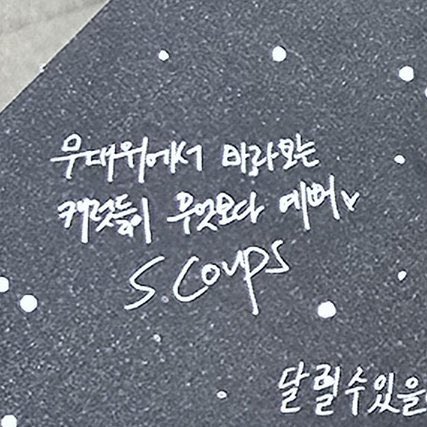 무대위에서 바라보는
캐럿들이 무엇보다 예뻐♥
S.Coups
달릴수있을